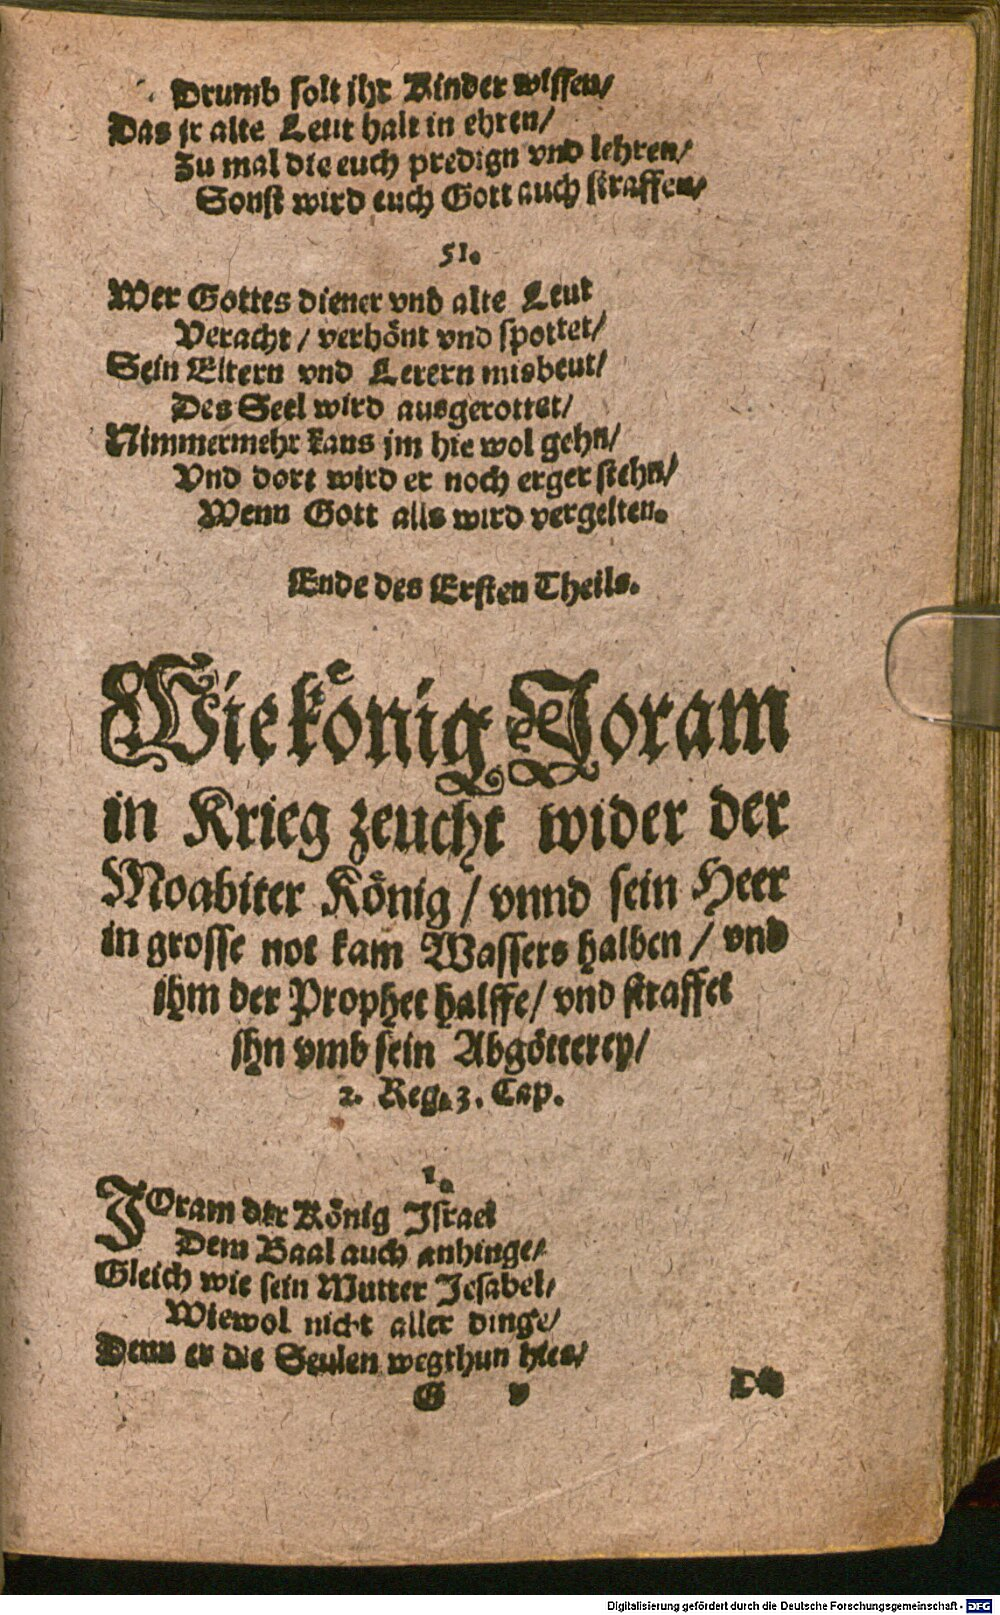 Drumb solt ihr Kinder wissen/
Das jr alte Leut halt in ehren/
Zu mal die euch predign vnd lehren/
Sonst wird euch Gott auch straffen/
51.
Wer Gottes diener vnd alte Leut
Veracht / verhönt vnd spottet/
Sein Eltern vnd Lerern misbeut/
Des Seel wird ausgerottet/
Nimmermehr kans jm hie wol gehn/
Vnd dort wird er noch erger stehn/
Wenn Gott alls wird vergelten.
Ende des Ersten Theils.
Wie König Joram
in Krieg zeucht wider der
Moabiter König / vnnd sein Heer
in grosse not kam Wassers halben / vnd
ihm der Prophet halffe/ vnd straffet
ihn vmb sein Abgötterey/
2. Reg. 3. Cap.
1.
JOram der König Israel
Dem Baal auch anhinge/
Gleich wie sein Mutter Jesabel/
Wiewol nicht aller dinge/
Denn er die Seulen wegthun hies/
G v
Digitalisierung gefördert durch die Deutsche Forschungsgemeinschaft - DFG